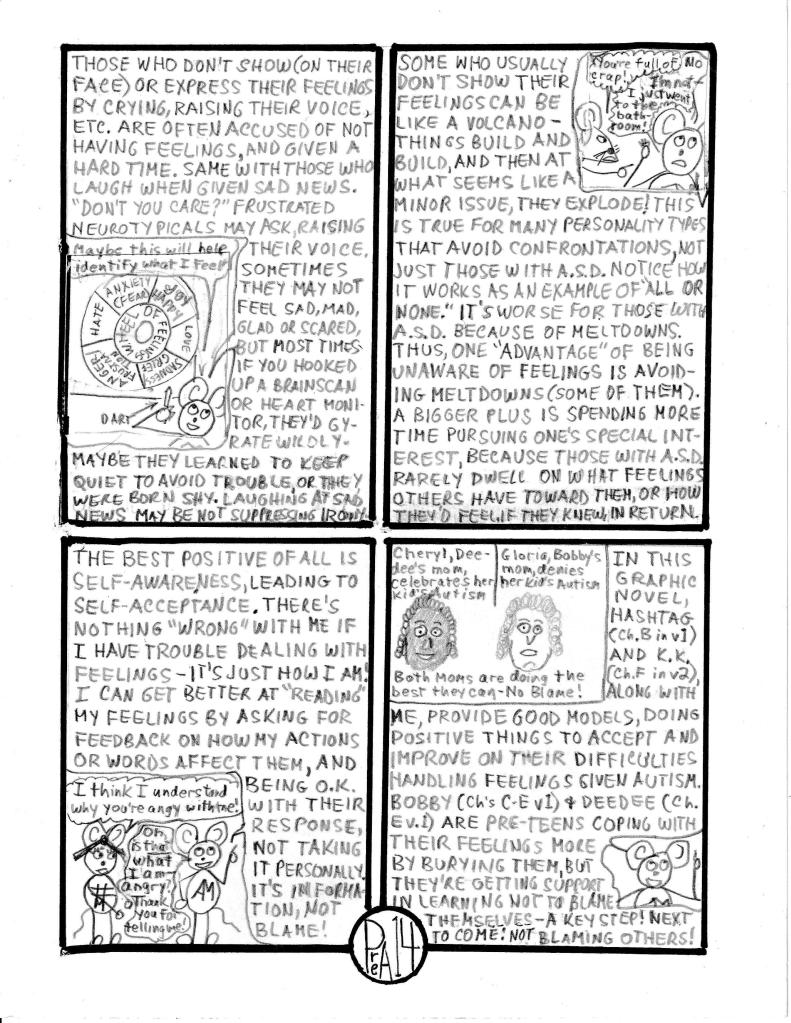 THOSE WHO DON'T SHOW (ON THEIR
FACE) OR EXPRESS THEIR FEELINGS
BY CRYING, RAISING THEIR VOICE,
ETC. ARE OFTEN ACCUSED OF NOT
HAVING FEELINGS, AND GIVEN A
HARD TIME. SAME WITH THOSE WHO
LAUGH WHEN GIVEN SAD NEWS.
"DON'T YOU CARE?" FRUSTRATED
NEUROTYPICALS MAY ASK, RAISING
THEIR VOICE.
SOMETIMES
THEY MAY NOT
FEEL SAD, MAD,
GLAD OR SCARED,
BUT MOST TIMES
IF YOU HOOKED
UP A BRAINSCAN
OR HEART MONI-
TOR, THEY'D GY-
RATE WILDLY-
MAYBE THEY LEARNED TO KEEP
QUIET TO AVOID TROUBLE, OR THEY
WERE BORN SHY. LAUGHING AT SAD
NEWS MAY BE NOT SUPPRESSING IRONY.
Maybe this will help
identify what I feel
ANXIETY
(FEAR)
JOY
HAPPY
LOVE
SADNESS
GRIEF
FRUSTRATION
ANGER
HATE
WHEEL OF FEELINGS
DART
SOME WHO USUALLY
DON'T SHOW THEIR
FEELINGS CAN BE
LIKE A VOLCANO-
THINGS BUILD AND
BUILD, AND THEN AT
WHAT SEEMS LIKE A
MINOR ISSUE, THEY EXPLODE! THIS
IS TRUE FOR MANY PERSONALITY TYPES
THAT AVOID CONFRONTATIONS, NOT
JUST THOSE WITH A.S.D. NOTICE HOW
IT WORKS AS AN EXAMPLE OF "ALL OR
NONE." IT'S WORSE FOR THOSE WITH
A.S.D. BECAUSE OF MELTDOWNS.
THUS, ONE "ADVANTAGE" OF BEING
UNAWARE OF FEELINGS IS AVOID-
ING MELTDOWNS (SOME OF THEM).
A BIGGER PLUS IS SPENDING MORE
TIME PURSUING ONE'S SPECIAL INT-
EREST, BECAUSE THOSE WITH A.S.D.
RARELY DWELL ON WHAT FEELINGS
OTHERS HAVE TOWARD THEM, OR HOW
THEY'D FEEL, IF THEY KNEW, IN RETURN.
You're full of
crap!
No
I'm not-
I just went
to the
bath-
room!
THE BEST POSITIVE OF ALL IS
SELF-AWARENESS, LEADING TO
SELF-ACCEPTANCE. THERE'S
NOTHING "WRONG" WITH ME IF
I HAVE TROUBLE DEALING WITH
FEELINGS - IT'S JUST HOW I AM!
I CAN GET BETTER AT "READING"
MY FEELINGS BY ASKING FOR
FEEDBACK ON HOW MY ACTIONS
OR WORDS AFFECT THEM, AND
BEING O.K.
WITH THEIR
RESPONSE,
NOT TAKING
IT PERSONALLY.
IT'S INFORMA-
TION, NOT
BLAME!
I think I understand
why you're angy with me!
Oh,
is that
what
I am-
angry?
Thank
you for
telling me!
#
M
AM
Cheryl, Dee-
dee's mom,
celebrates her
kid's Autism
Gloria, Bobby's
mom, denies
her kid's Autism
Both Moms are doing the
best they can-No Blame!
IN THIS
GRAPHIC
NOVEL,
HASHTAG
(Ch.B in v1)
AND K.K.
(Ch.F in v2),
ALONG WITH
ME, PROVIDE GOOD MODELS, DOING
POSITIVE THINGS TO ACCEPT AND
IMPROVE ON THEIR DIFFICULTIES
HANDLING FEELINGS GIVEN AUTISM.
BOBBY (Ch's C-E v1) & DEEDEE (Ch.
E v.1) ARE PRE-TEENS COPING WITH
THEIR FEELINGS MORE
BY BURYING THEM, BUT
THEY'RE GETTING SUPPORT
IN LEARNING NOT TO BLAME
THEMSELVES - A KEY STEP! NEXT
TO COME: NOT BLAMING OTHERS!
PreA14